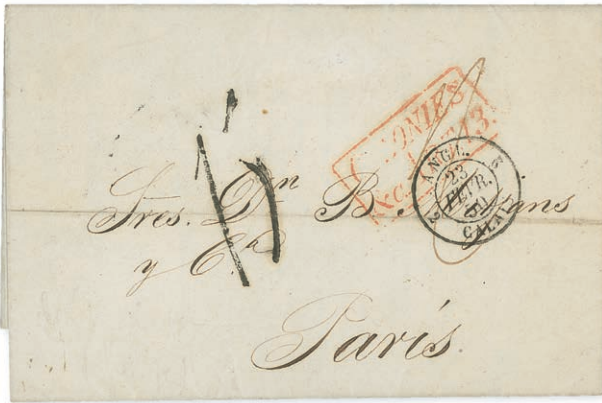 COLONIES
&c. ART. 13.
2 ANGL. 2
23
FEVR.
50
CALAIS
15
Sres. Dn B.
y Ca
París.